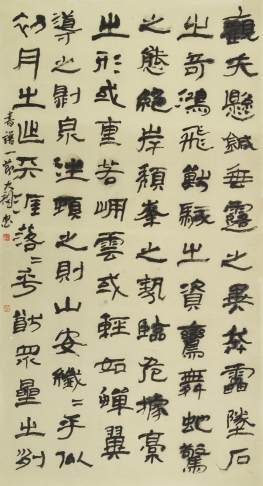 觀夫懸鍼垂露之異奔靁墜石
之奇鴻飛獸駭之資鸞舞蛇驚
之態絕岸頹峯之勢臨危據槀
之形或重若崩雲或輕如蟬翼
導之則泉注頓之則山安纖〻乎似
初月之出天涯落〻乎猷眾星之列
書譜一節